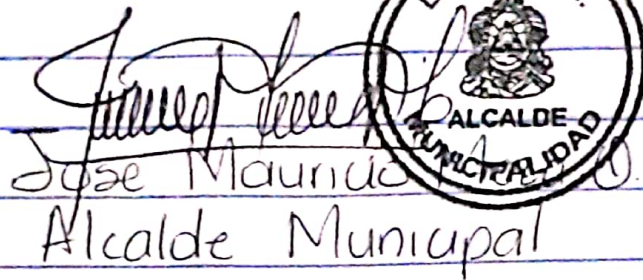 ALCALDE
MUNICIPALIDAD
Jose Mauricio
Alcalde Municipal